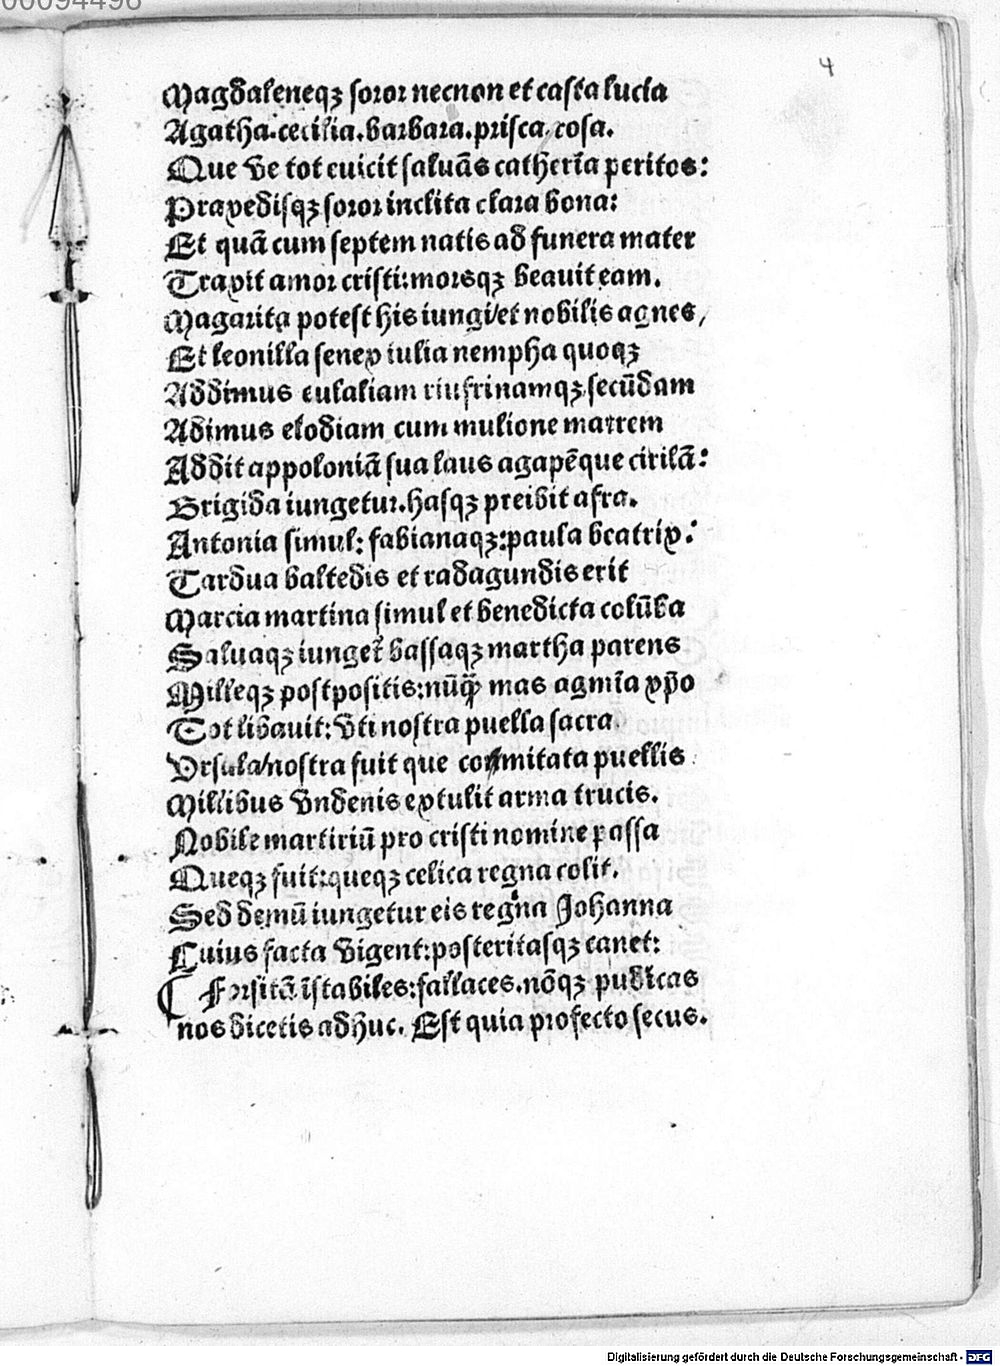 00094496
4
Magdaleneqꝫ soror necnon et casta lucia
Agatha.cecilia.barbara.prisca.rosa.
Que ve tot euicit saluās catherīa peritos:
Praxedisqꝫ soror inclita clara bona:
Et quā cum septem natis ad funera mater
Traxit amor cristi:morsqꝫ beauit eam.
Magarita potest his iungi/et nobilis agnes/
Et leonilla senex iulia nempha quoqꝫ
Addimus eulaliam riufrinamqꝫ secūdam
Adimus elodiam cum mulione matrem
Addit appoloniā sua laus agapēque cirilā:
Brigida iungetur.hasqꝫ preibit afra.
Antonia simul: fabianaqꝫ:paula beatrix:
Tardua baltedis et radagundis erit
Marcia martina simul et benedicta colūba
Saluaqꝫ iunget᷑ bassaqꝫ martha parens
Milleqꝫ postpositis:nūꝙ̄ mas agmīa xp̄o
Tot libauit:vti nostra puella sacra
Vrsula/nostra fuit que commitata puellis
Millibus vndenis extulit arma trucis.
Nobile martiriū pro cristi nomine passa
Queqꝫ fuit:queqꝫ celica regna colit.
Sed demū iungetur eis regna Johanna
Cuius facta vigent:posteritasqꝫ canet:
⸿ Forsitā īstabiles:fallaces.nōqꝫ pudicas
nos dicetis adhuc. Est quia profecto secus.
Digitalisierung gefördert durch die Deutsche Forschungsgemeinschaft - DFG